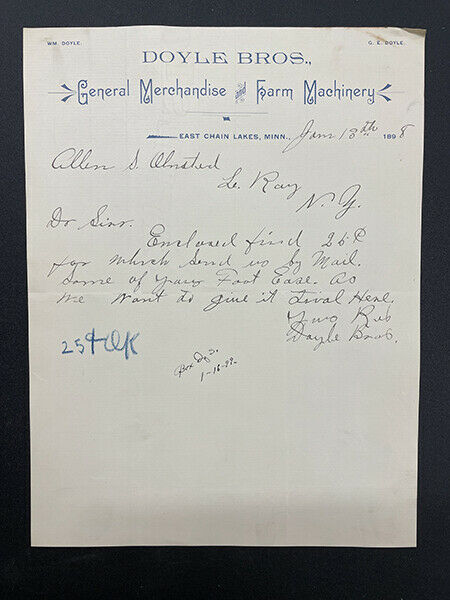 WM. DOYLE.
G. E. DOYLE.
DOYLE BROS.,
General Merchandise and Farm Machinery
EAST CHAIN LAKES, MINN., Jan 13th 1898
Allen S. Olmsted
Le Roy
N. Y.
Dr Sirs.
Enclosed find 25¢
for which send us by Mail.
Some of your Foot Ease. as
we want to give it Trial Here.
Yours
Doyle Bros.
25¢ OK
1-16-99.